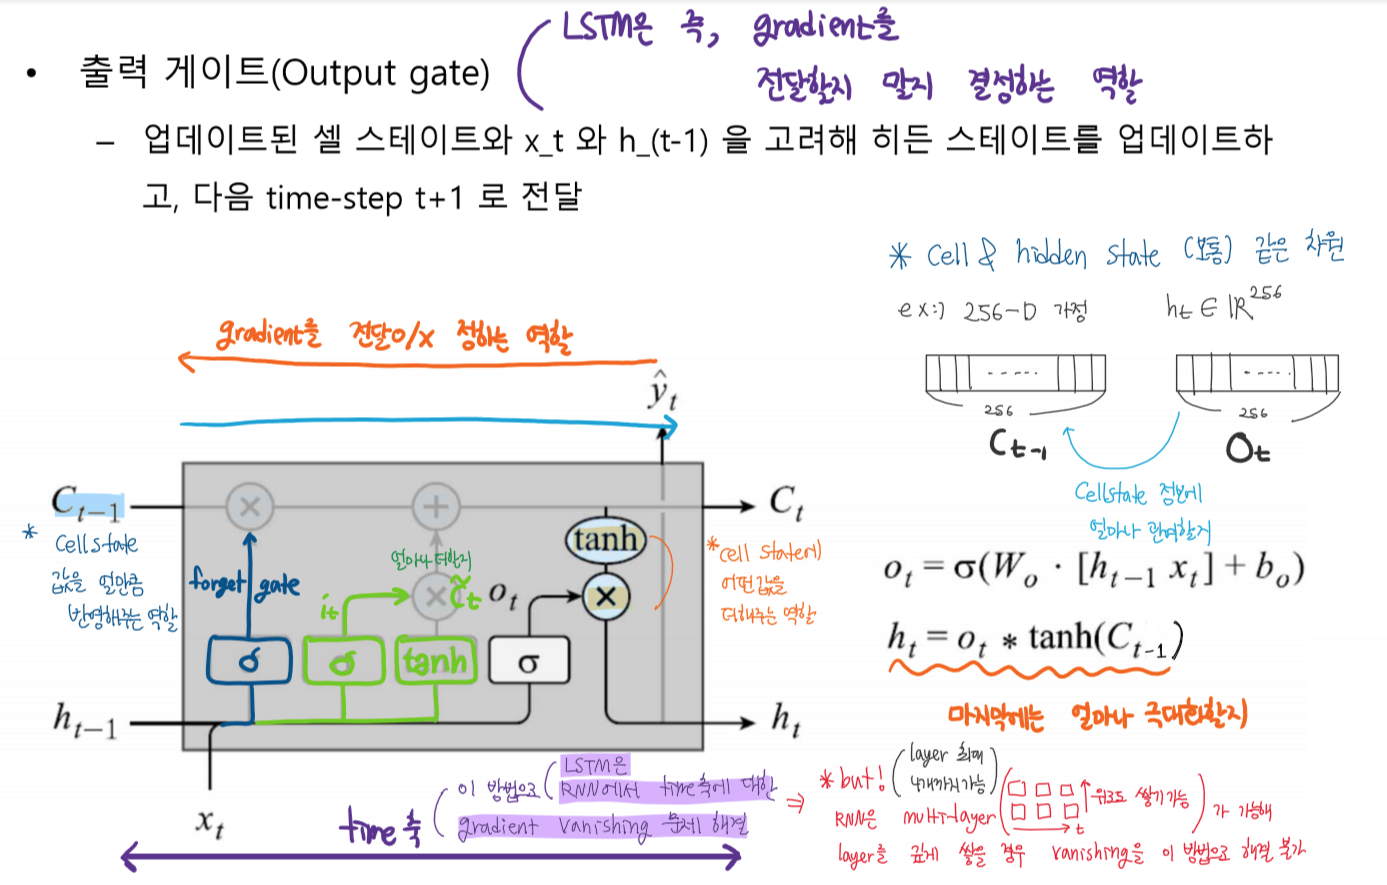 LSTM은 즉, gradient를
전달할지 말지 결정하는 역할
• 출력 게이트(Output gate)
– 업데이트된 셀 스테이트와 x_t 와 h_(t-1) 을 고려해 히든 스테이트를 업데이트하
고, 다음 time-step t+1 로 전달
* Cell & hidden state (보통) 같은 차원
ex:) 256-D 가정
h_t ∈ ℝ^256
256
C_t-1
256
O_t
Cellstate 정보에
얼마나 관여할지
gradient를 전달O/X 정하는 역할
ŷ_t
C_t-1
* Cellstate
값을 얼만큼
반영해주는 역할
forget gate
×
+
얼마나 더할지
×
C̃_t
i_t
o_t
tanh
×
σ
σ
tanh
σ
C_t
* cell state에
어떤 값을
더해주는 역할
h_t-1
h_t
x_t
o_t = σ(W_o · [h_t-1 x_t] + b_o)
h_t = o_t * tanh(C_t-1)
마지막에는 얼마나 극대화할지
time 축
이 방법으로
LSTM은
RNN에서 time축에 대한
gradient vanishing 문제 해결
⇒ * but!
layer 최대
4개까지 가능
RNN은 multi-layer
t
위로도 쌓기 가능
가 가능해
layer를 깊게 쌓을 경우 vanishing을 이 방법으로 해결 불가